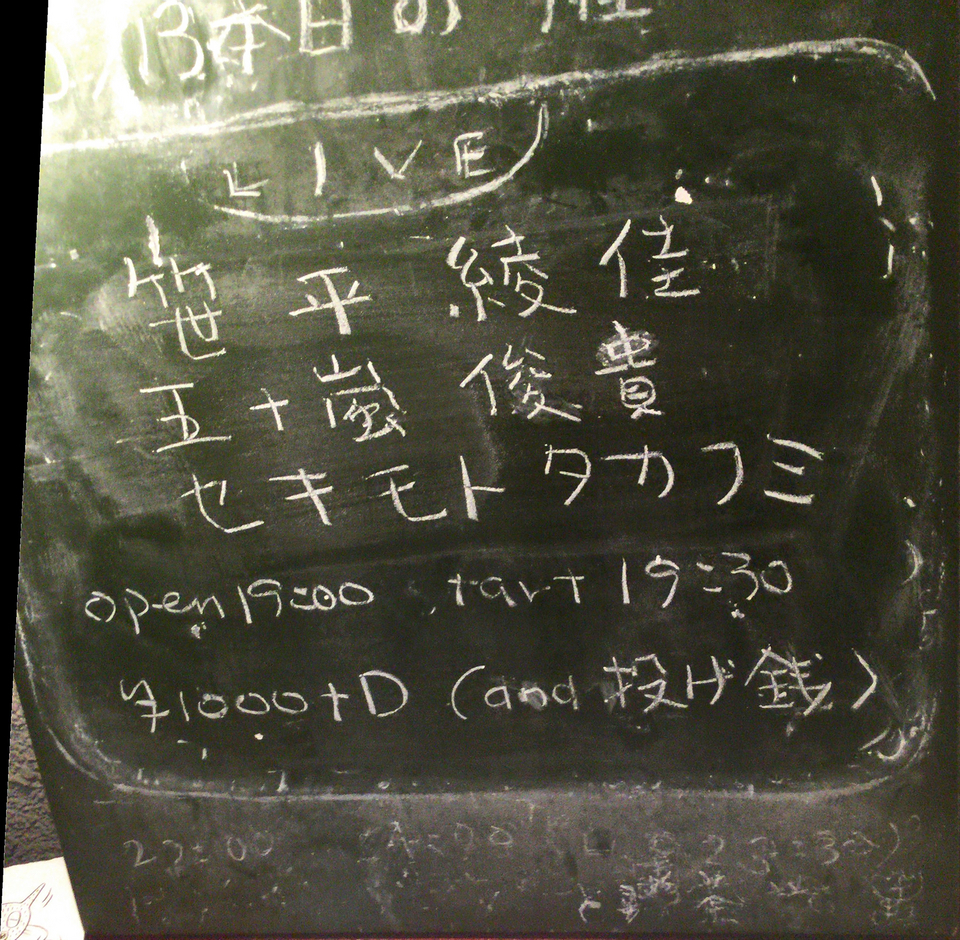 13本日の
LIVE
笹平綾佳
五十嵐俊貴
セキモトタカフミ
open 19:00 start 19:30
¥1000+D (and 投げ銭)